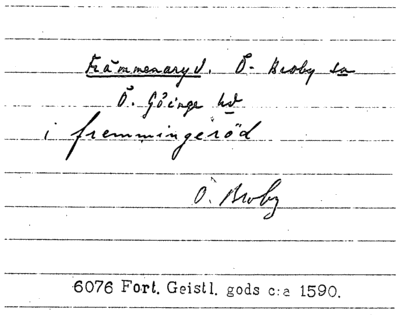 Främmenaryd. Ö. Broby sn
Ö. Göinge hd
i fremmingeröd
Ö. Broby
6076 Fort. Geistl. gods c:a 1590.